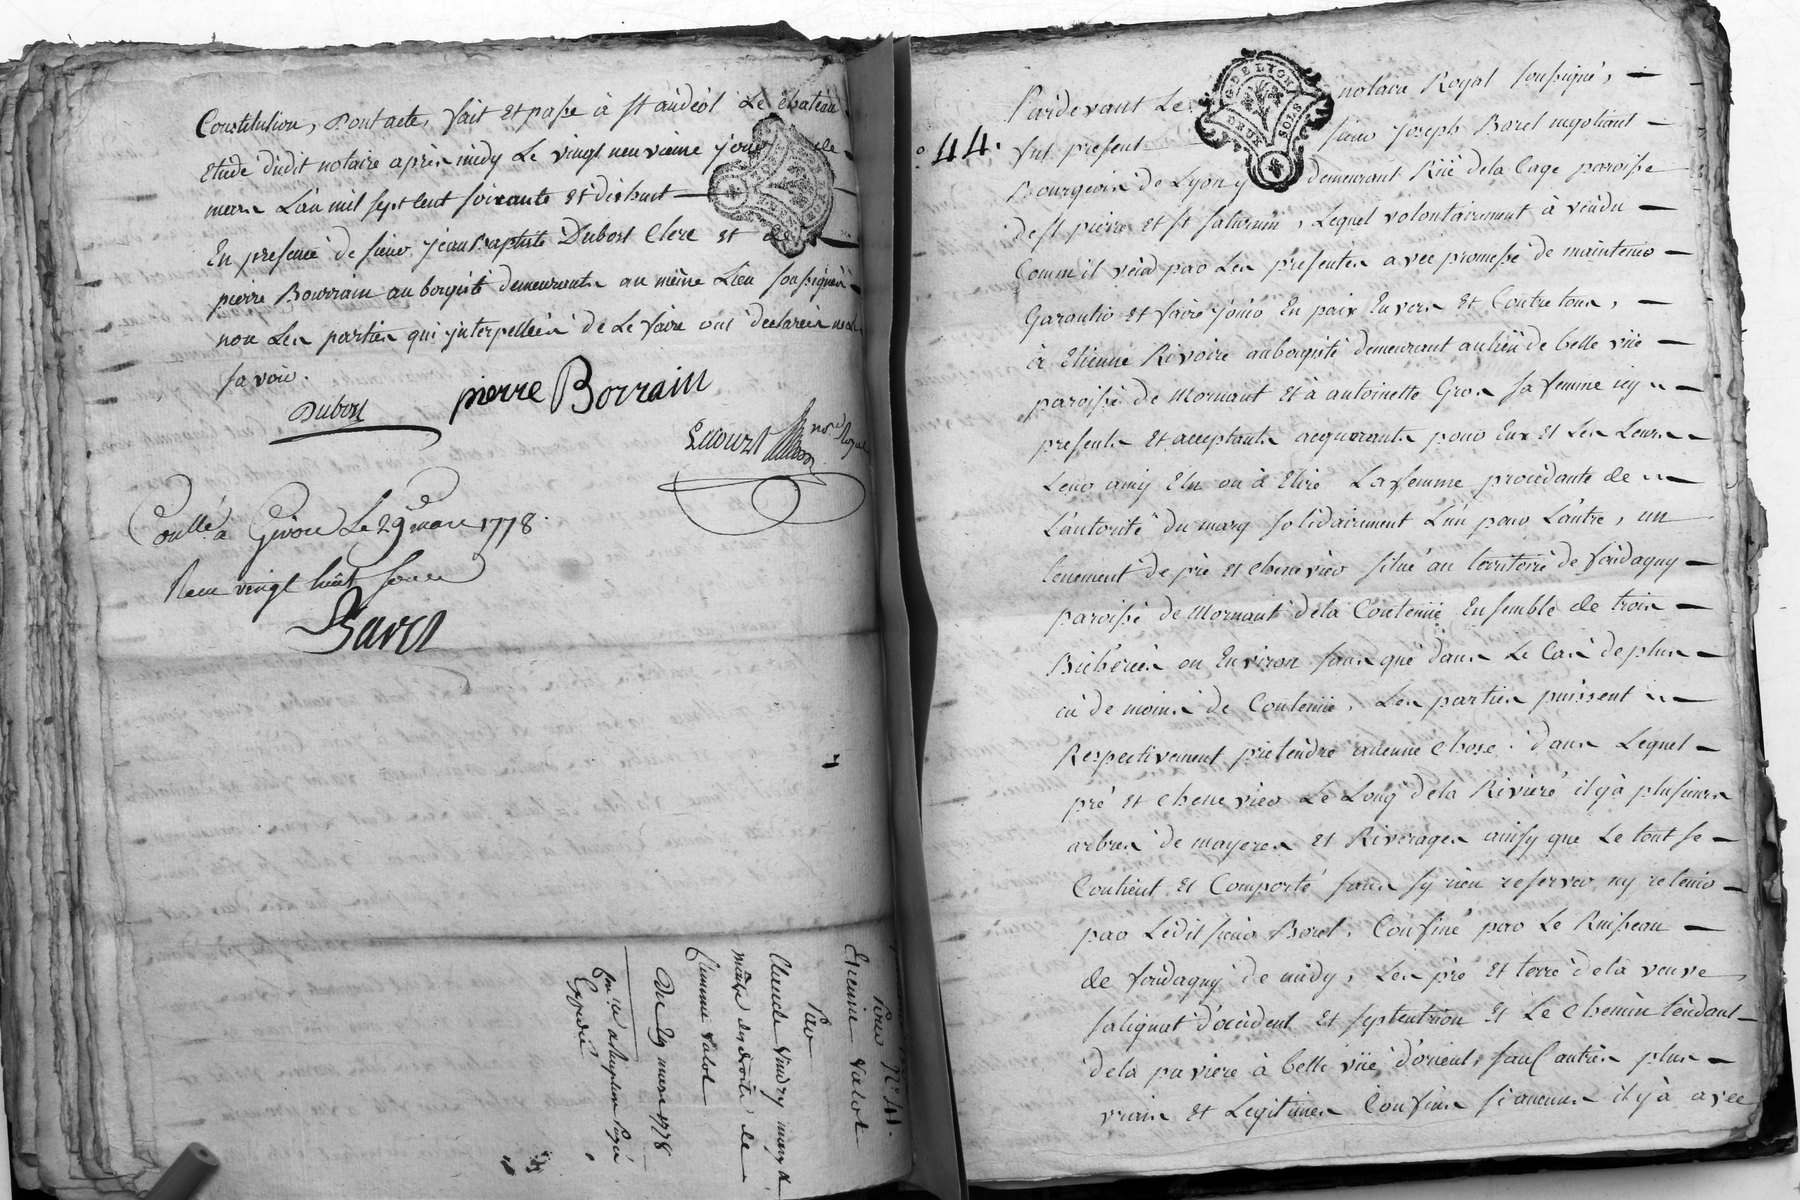 Constitution, Dont acte, fait Et passé à st andéol Le chateau
Etude dudit notaire après midy Le vingt neuvième jour de
mars L'an mil sept Cent soixante Et dixhuit —
En presence de sieur jean Baptiste Dubost Clerc Et de
pierre Bourrain aubergiste demeurants au même Lieu soussignés
non Les parties qui jnterpellées de Le faire ont declarées ne
savoir.
Dubost
pierre Borrain
not Royal
Conllé à Givors Le 29 mars 1778.
Recu vingt huit sous
Pour N° 41.
Etienne Valot
Par
Claude Vindry mary &
maître des droits de
Clemence Valot
Du 29 mars 1778
Expedié
44.
Pardevant Le notaire Royal soussigné, —
fut present sieur joseph Borel negotiant —
Bourgeois de Lyon y demeurant Rüe dela Cage paroisse
de st pierre et st saturnin, Lequel volontairement à vendu —
Comm'il vend par Les presentes avec promesse de maintenir —
Garantir Et faire joüir En paix Envers Et Contre tous, —
à Etienne Rivoire aubergiste demeurant au lieu de belle vüe —
paroisse de Mornant Et à antoinette Gros sa femme icy —
presents Et acceptants acquerants pour Eux Et Les Leurs —
Leur amy Elu ou à Elire La femme procedante de —
L'autorité du mary solidairement L'un pour L'autre, un
tenement de pré et chenevier situé au territoire de fondagny —
paroisse de Mornant dela Contenüe Ensemble de trois —
Bicherées ou Environ sans que dans Le Cas de plus —
ou de moins de Contenüe, Les parties puissent —
Respectivement pretendre aucune chose. dans Lequel —
pré et chenevier Le Long dela Riviere il y à plusieurs
arbres de mayeres et Riverages ainsy que Le tout se —
Contient Et Comporte sans sy rien reserver ny retenir —
par Ledit sieur Borel, Confiné par Le Ruisseau —
de fondagny de midy, Les pré Et terre dela veuve
salignat d'occident Et septentrion Et Le Chemin tendant —
dela paviere à belle vüe d'orient, sauf autres plus —
vrais et Legitimes Confins si aucuns il y à avec
G. DE LYON
DEUX SOLS